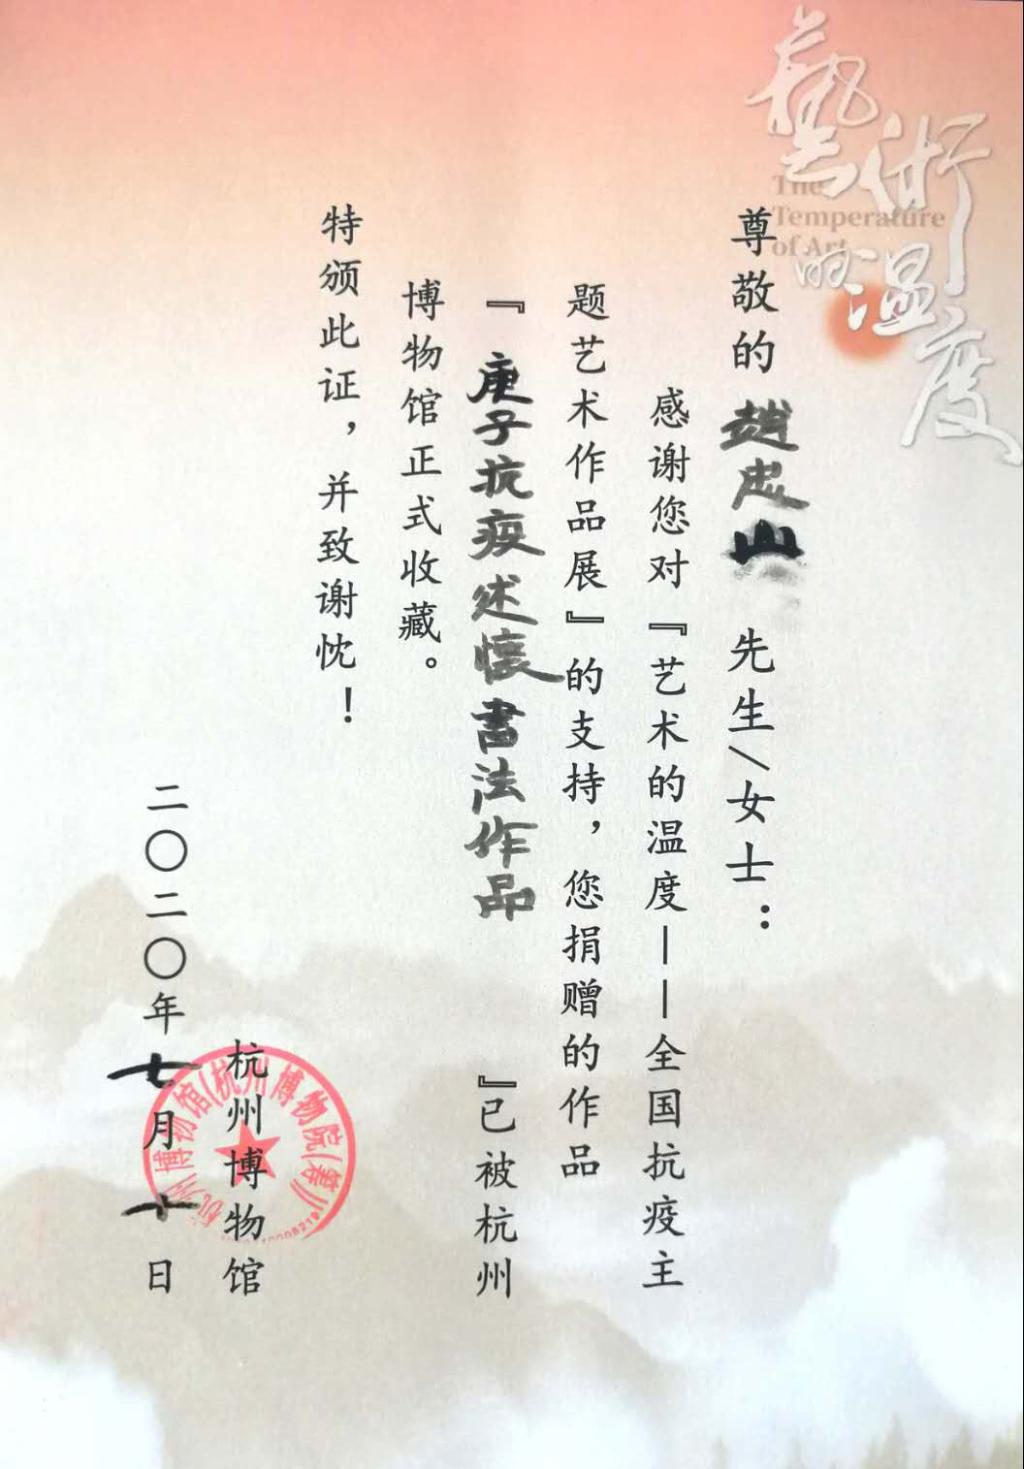 藝術的温度
The
Temperature
of Art
尊敬的趙忠山 先生/女士：
感谢您对『艺术的温度——全国抗疫主
题艺术作品展』的支持，您捐赠的作品
『庚子抗疫述懷書法作品 』已被杭州
博物馆正式收藏。
特颁此证，并致谢忱！
杭州博物馆
二〇二〇年七月十日
杭州博物馆(杭州博物院(筹))